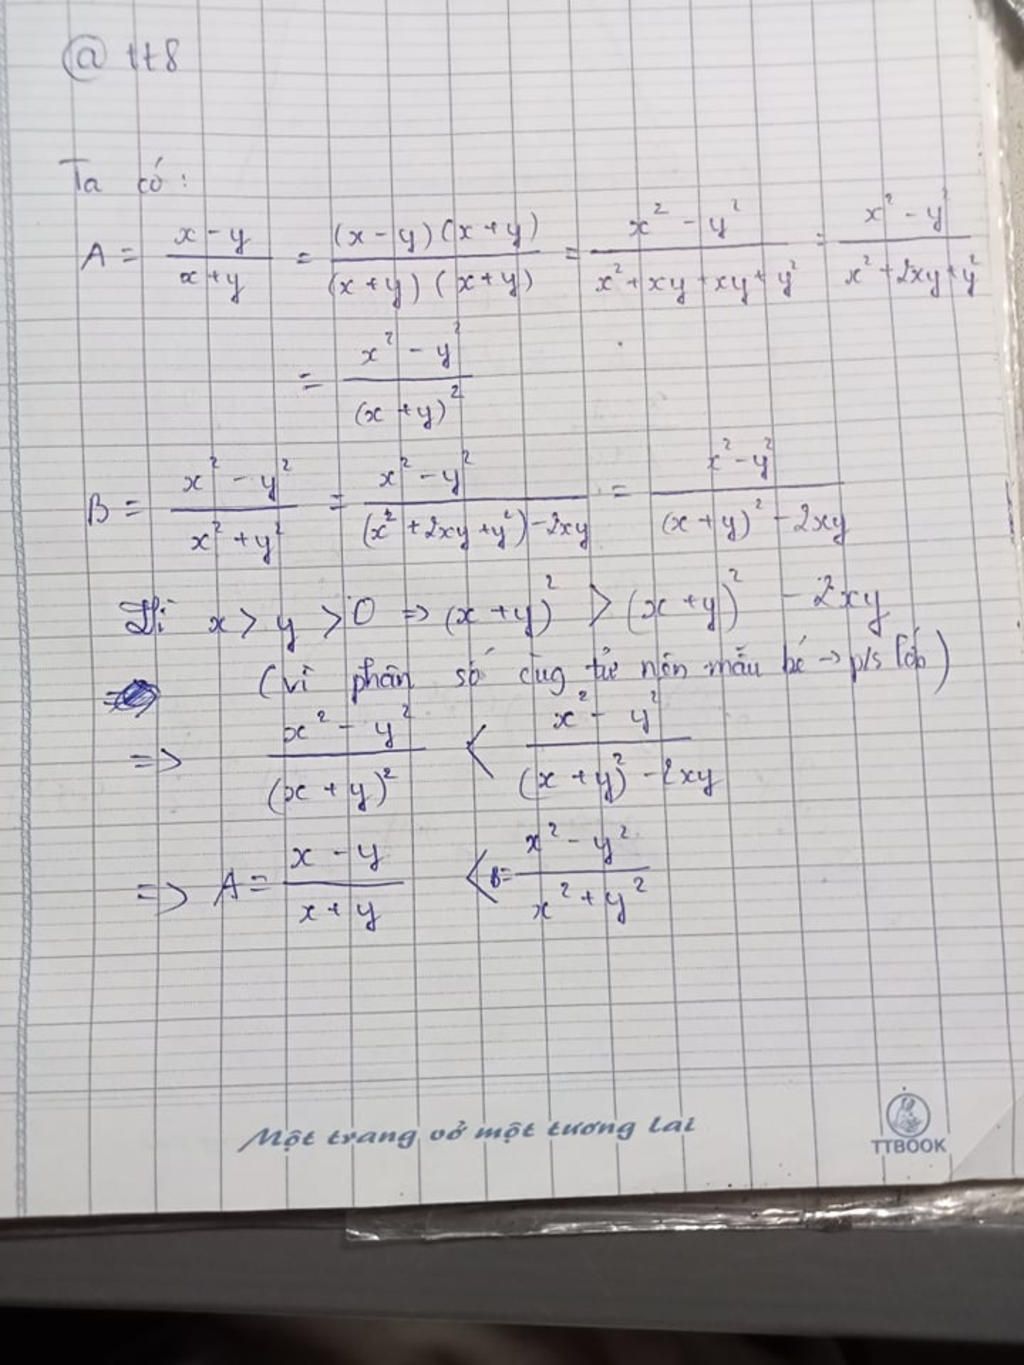 @ 1t8
Ta có:
A = (x - y)/(x + y) = ((x - y)(x + y))/((x + y)(x + y)) = (x² - y²)/(x² + xy + xy + y²) = (x² - y²)/(x² + 2xy + y²)
= (x² - y²)/(x + y)²
B = (x² - y²)/(x² + y²) = (x² - y²)/((x² + 2xy + y²) - 2xy) = (x² - y²)/((x + y)² - 2xy)
Vì x > y > 0 => (x + y)² > (x + y)² - 2xy
(vì phân số cùg tử nên mẫu bé → p/s lớn)
=> (x² - y²)/(x + y)² < (x² - y²)/((x + y)² - 2xy)
=> A = (x - y)/(x + y) < B = (x² - y²)/(x² + y²)
Một trang vở một tương lai
TTBOOK